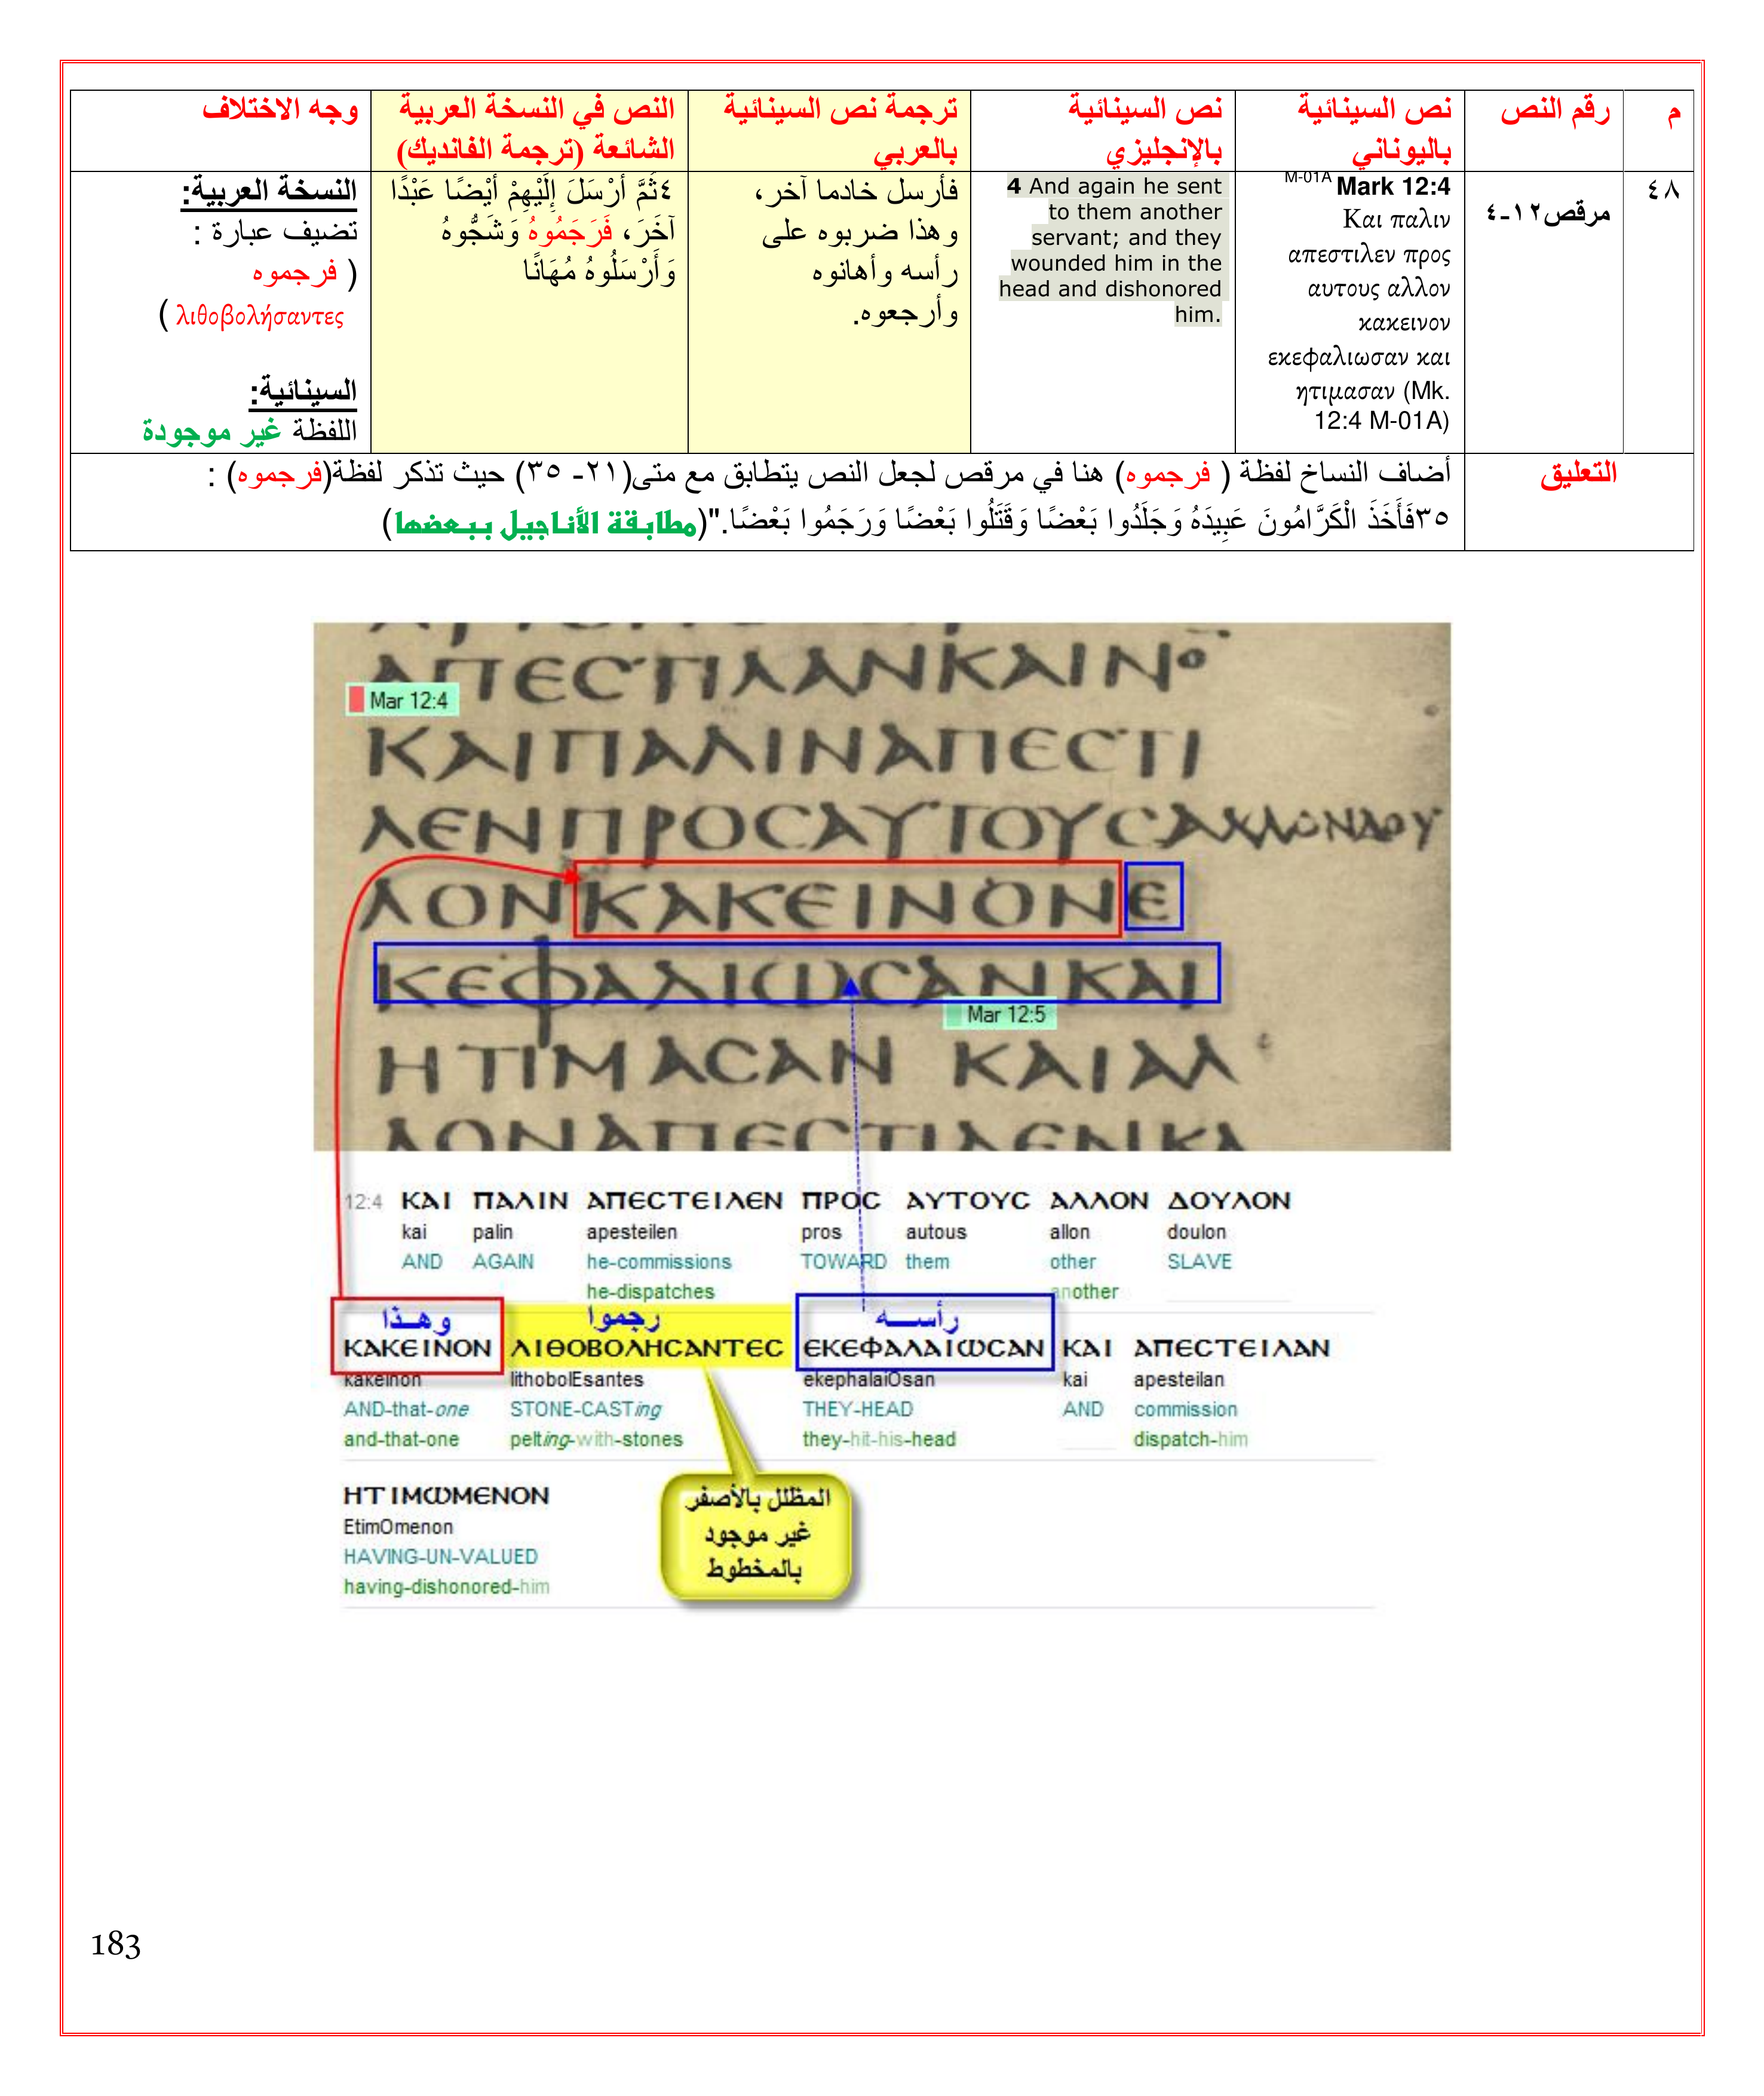 م
رقم النص
نص السينائية
باليوناني
نص السينائية
بالإنجليزي
ترجمة نص السينائية
بالعربي
النص في النسخة العربية
الشائعة (ترجمة الفانديك)
وجه الاختلاف
٤٨
مرقص١٢-٤
M-01A Mark 12:4
Και παλιν
απεστιλεν προς
αυτους αλλον
κακεινον
εκεφαλιωσαν και
ητιμασαν (Mk.
12:4 M-01A)
4 And again he sent
to them another
servant; and they
wounded him in the
head and dishonored
him.
فأرسل خادما آخر،
وهذا ضربوه على
رأسه وأهانوه
وأرجعوه.
٤ثُمَّ أَرْسَلَ إِلَيْهِمْ أَيْضًا عَبْدًا
آخَرَ، فَرَجَمُوهُ وَشَجُّوهُ
وَأَرْسَلُوهُ مُهَانًا
النسخة العربية:
تضيف عبارة :
( فرجموه
λιθοβολήσαντες )
السينائية:
اللفظة غير موجودة
التعليق
أضاف النساخ لفظة ( فرجموه) هنا في مرقص لجعل النص يتطابق مع متى(٢١- ٣٥) حيث تذكر لفظة(فرجموه) :
٣٥فَأَخَذَ الْكَرَّامُونَ عَبِيدَهُ وَجَلَدُوا بَعْضًا وَقَتَلُوا بَعْضًا وَرَجَمُوا بَعْضًا."(مطابقة الأناجيل ببعضها)
ΑΠΕϹΤΙΛΑΝΚΑΙΝΟ
Mar 12:4
ΚΑΙΠΑΛΙΝΑΠΕϹΤΙ
ΛΕΝΠΡΟϹΑΥΤΟΥϹΑΛΛΟΝΔΟΥ
ΛΟΝΚΑΚΕΙΝΟΝΕ
ΚΕΦΑΛΙΩϹΑΝΚΑΙ
Mar 12:5
ΗΤΙΜΑϹΑΝ ΚΑΙΑΛ
ΛΟΝΑΠΕϹΤΙΛΕΝΚΑ
12:4 ΚΑΙ ΠΑΛΙΝ ΑΠΕϹΤΕΙΛΕΝ ΠΡΟϹ ΑΥΤΟΥϹ ΑΛΛΟΝ ΔΟΥΛΟΝ
kai palin apesteilen pros autous allon doulon
AND AGAIN he-commissions TOWARD them other SLAVE
he-dispatches another
وهذا رجموا رأسه
ΚΑΚΕΙΝΟΝ ΛΙΘΟΒΟΛΗϹΑΝΤΕϹ ΕΚΕΦΑΛΑΙΩϹΑΝ ΚΑΙ ΑΠΕϹΤΕΙΛΑΝ
kakeinon lithobolEsantes ekephalaiOsan kai apesteilan
AND-that-one STONE-CASTing THEY-HEAD AND commission
and-that-one pelting-with-stones they-hit-his-head dispatch-him
ΗΤΙΜΩΜΕΝΟΝ
EtimOmenon
HAVING-UN-VALUED
having-dishonored-him
المظلل بالأصفر
غير موجود
بالمخطوط
183